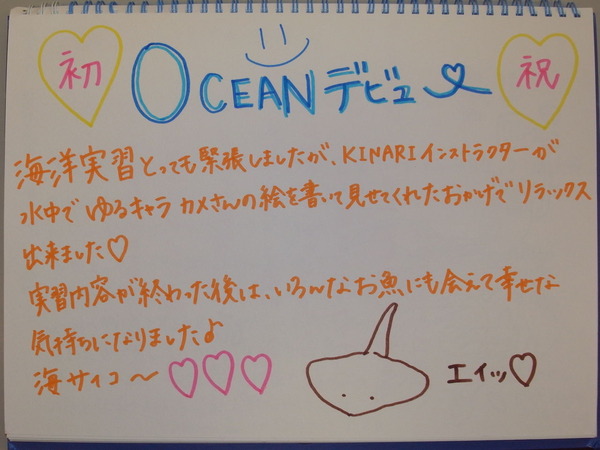 初 OCEANデビュー 祝
海洋実習とっても緊張しましたが、KINARIインストラクターが
水中でゆるキャラ カメさんの絵を書いて見せてくれたおかげでリラックス
出来ました♡
実習内容が終わった後は、いろんなお魚にも会えて幸せな
気持ちになりました♪
海サイコ〜♡♡♡
エイッ♡